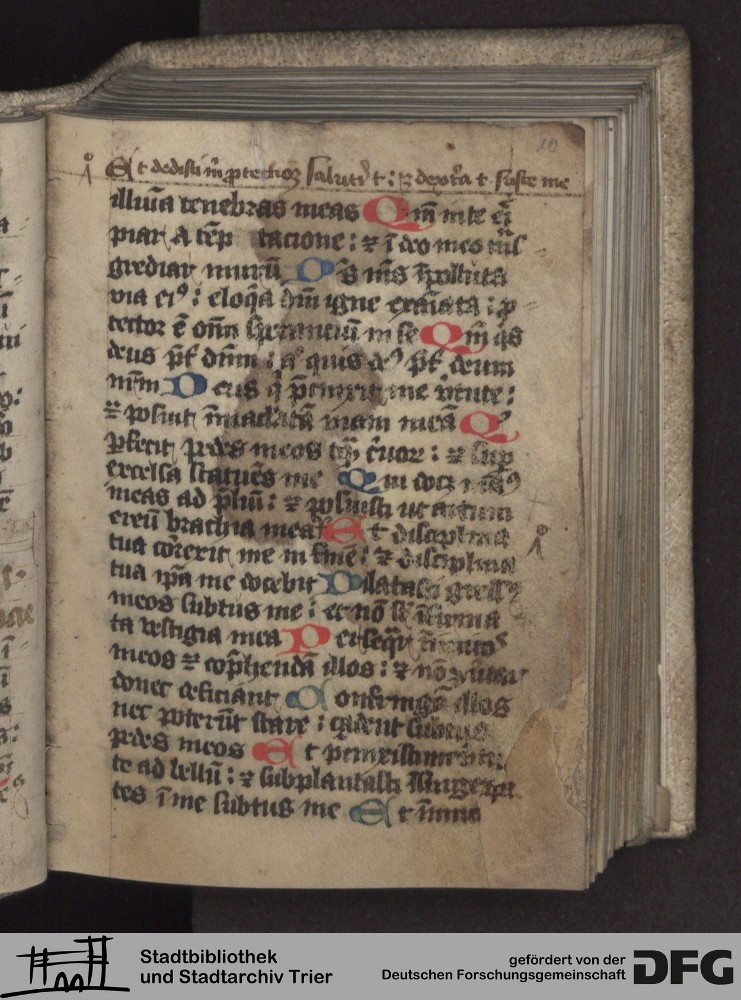 10
Et dedisti m̄ ꝓtectioꝫ saluti⁹ t : ⁊ dext̾a t suſce me
illuīa tenebras meas Qm̄ in te eͥ
piar A tēp tacione : ⁊ ī deo meo tͥnſ
grediar murū Dˢ mˢ īpolluta
via eiꝰ : eloq̄a dn̄i igne exaīata : ꝓ
tector ē oīm ſperanciū in ſe Qm̄ qͥs
deus p̄t dn̄m : aͭ quis dꝰ p̄t deum
nr̄m Deus qͥ p̄cinxit me v̾tute :
⁊ poſuit īmaclatā viam meā Qͥ
ꝑfecit pedes meos tqͣ c̾uoꝝ : ⁊ ſuꝑ
excelſa ſtatuēs me Qui docꝫ manꝰ
meas ad p̄liū : ⁊ poſuiſti ut arcum
ereū brachia mea Et diſciplina
tua cōrexit me in finē : ⁊ diſciplina
tua ip̄a me docebit Dilataſti greſſꝰ
meos ſubtus me : et nō ſt īfirma
ta veſtigia mea Perſeqͣr īimicos
meos ⁊ cōp̄hendā illos : ⁊ nō
donec deficiant Confringā illos
nec poterūt ſtare : cadent ſubtus
pedes meos Et p̄cinxiſti me v̾tu
te ad bellū : ⁊ ſubplantaſti īſurgen
tes ī me ſubtus me Et īimic
Stadtbibliothek
und Stadtarchiv Trier
gefördert von der
Deutschen Forschungsgemeinschaft DFG